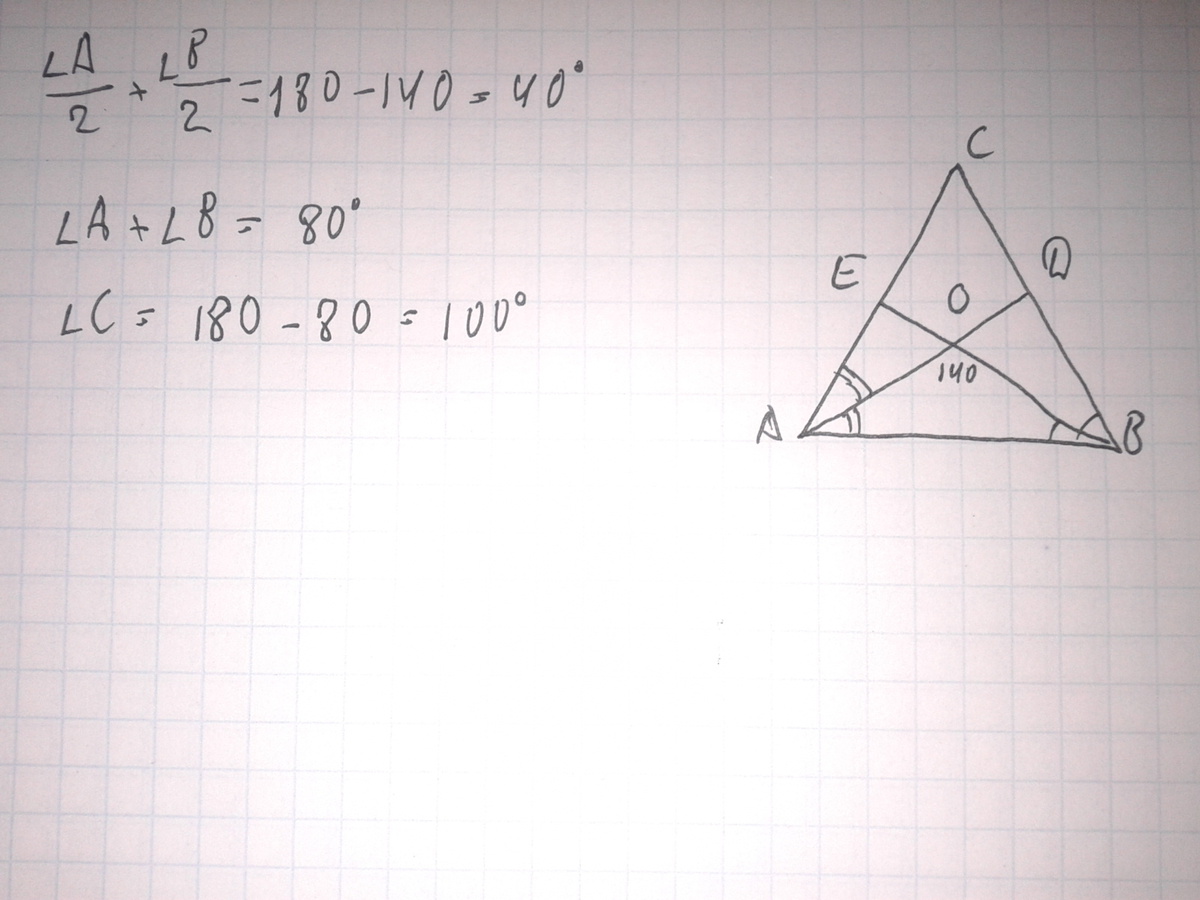 ∠A/2 + ∠B/2 = 180 - 140 = 40°
∠A + ∠B = 80°
∠C = 180 - 80 = 100°
C
E
D
O
140
A
B